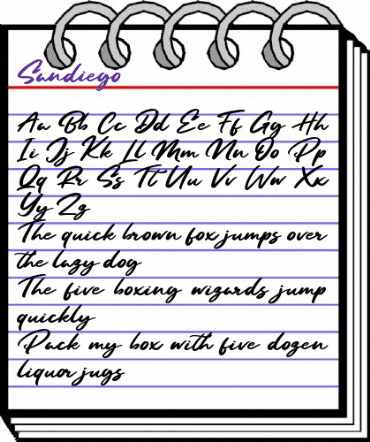 Sandiego
Aa Bb Cc Dd Ee Ff Gg Hh
Ii Jj Kk Ll Mm Nn Oo Pp
Qq Rr Ss Tt Uu Vv Ww Xx
Yy Zz
The quick brown fox jumps over
the lazy dog
The five boxing wizards jump
quickly
Pack my box with five dozen
liquor jugs